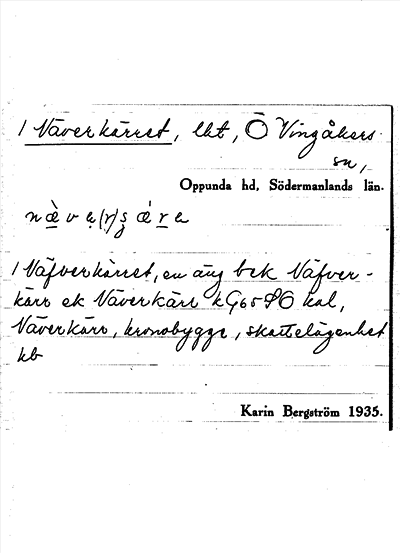 1 Näverkärret, lht, Ö Vingåkers
sn,
Oppunda hd, Södermanlands län.
1 Näfverkärret, en äng bek Näfver-
kärr ek Näverkärr kG65 kal,
Näverkärr, kronobygge, skattelägenhet
kb
Karin Bergström 1935.